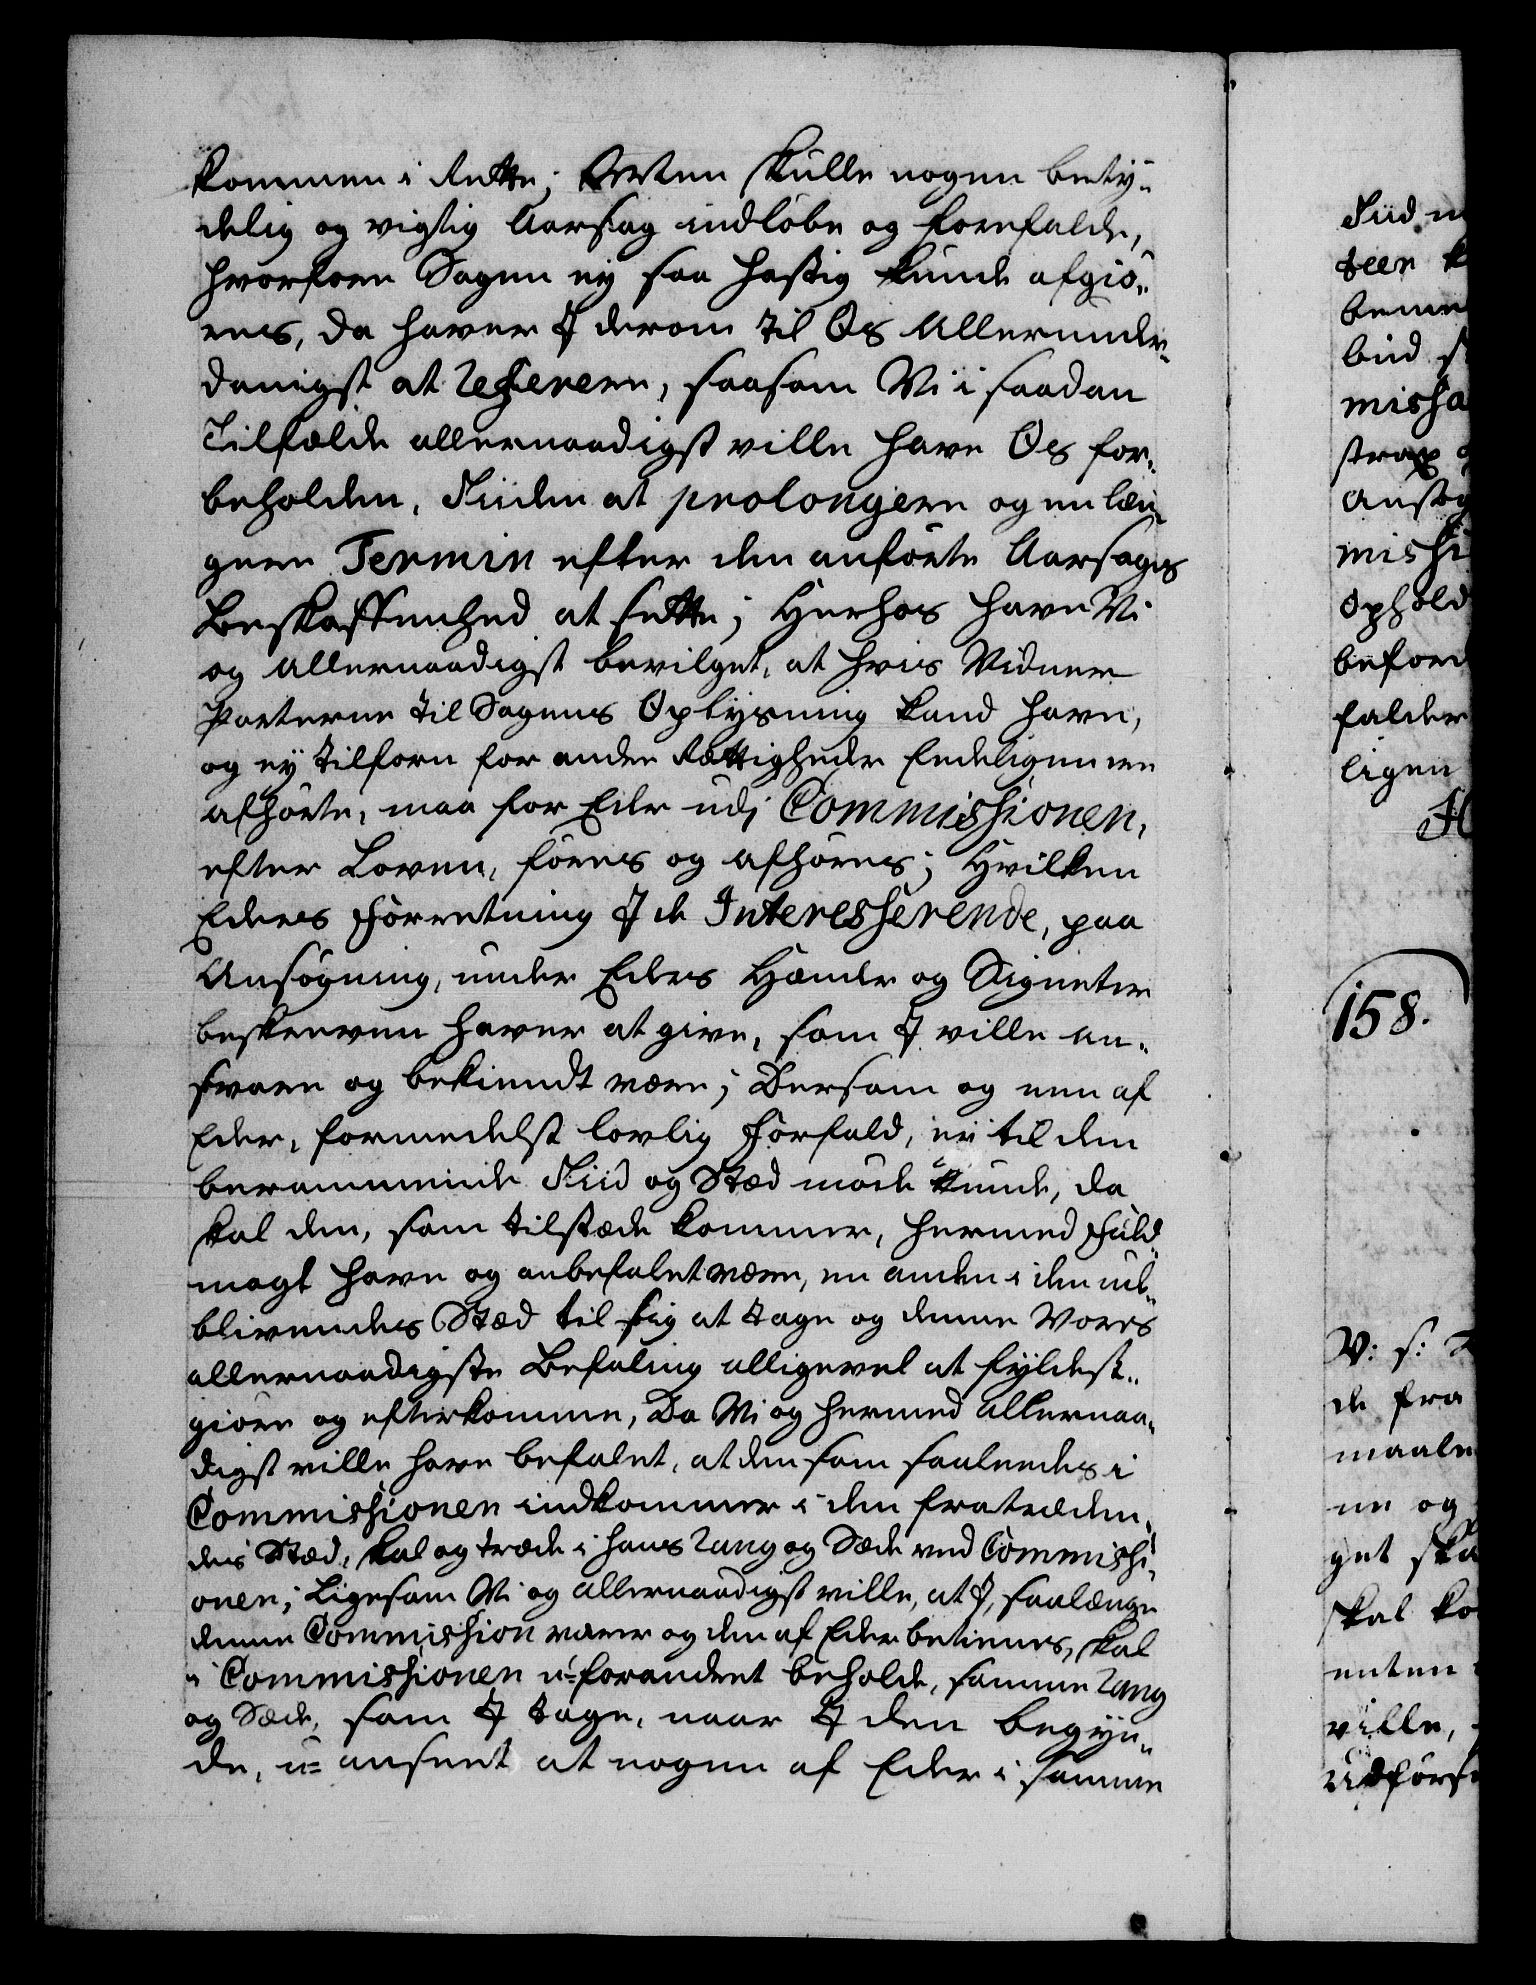 kommen i Rette; Men skulle nogen betÿ-
delig og vigtig Aarsag indløbe og forefalde,
hvorfore Sagen ej saa hastig kunde afgiø-
res, da haver I derom til Os Allerunder-
danigst at referere, saasom Vi i saadan
Tilfælde allernaadigst ville have Os for-
beholden, Tiiden at prolongere og en læn-
gere Termin efter den anførte Aarsags
Beskaffenhed at sætte; Herhos have Vi
og allernaadigst bevilget, at hvis Vidner
Parterne til Sagens Oplysning kand have,
og ej tilforn for andre Rættigheder Endeligen ere
afhørte, maa for Eder udj Commissionen,
efter Loven, føres og afhøres; Hvilken
Eders Forretning I de Interesserende, paa
Ansøgning, under Eders Hænder og Signeter
beskreven haver at give, som I ville an-
svare og bekiendt være; Dersom og een af
Eder, formedelst lovlig Forfald, ei til den
berammende Tiid og Stæd møde kunde, da
skal den, som tilstæde kommer, hermed Fuld-
magt have og anbefalet være, en anden i den ud-
blivendes Stæd til sig at tage og denne Vores
allernaadigste Befaling alligevel at fyldest-
giøre og efterkomme, Da Vi og hermed allernaa-
digst ville have befalet, at den som saaledes i
Commissionen indkommer i den fratræden-
des Stæd, skal og træde i hans Rang og Sæde ved Commissi-
onen; Ligesom Vi og allernaadigst ville, at I, saalænge
denne Commission varer og den af Eder betienes, skal
i Commissionen u-forandret beholde, samme Rang
og Sæde, som I tage, naar I den begyn-
de, u-anseet at nogen af Eder i samme
Tiid
teer
bud
missa
strax
missi
Ophold
falder
ligen
158.
V: s:
de fra
ne og
get ska
skal ko
enten
ville,
Udførs